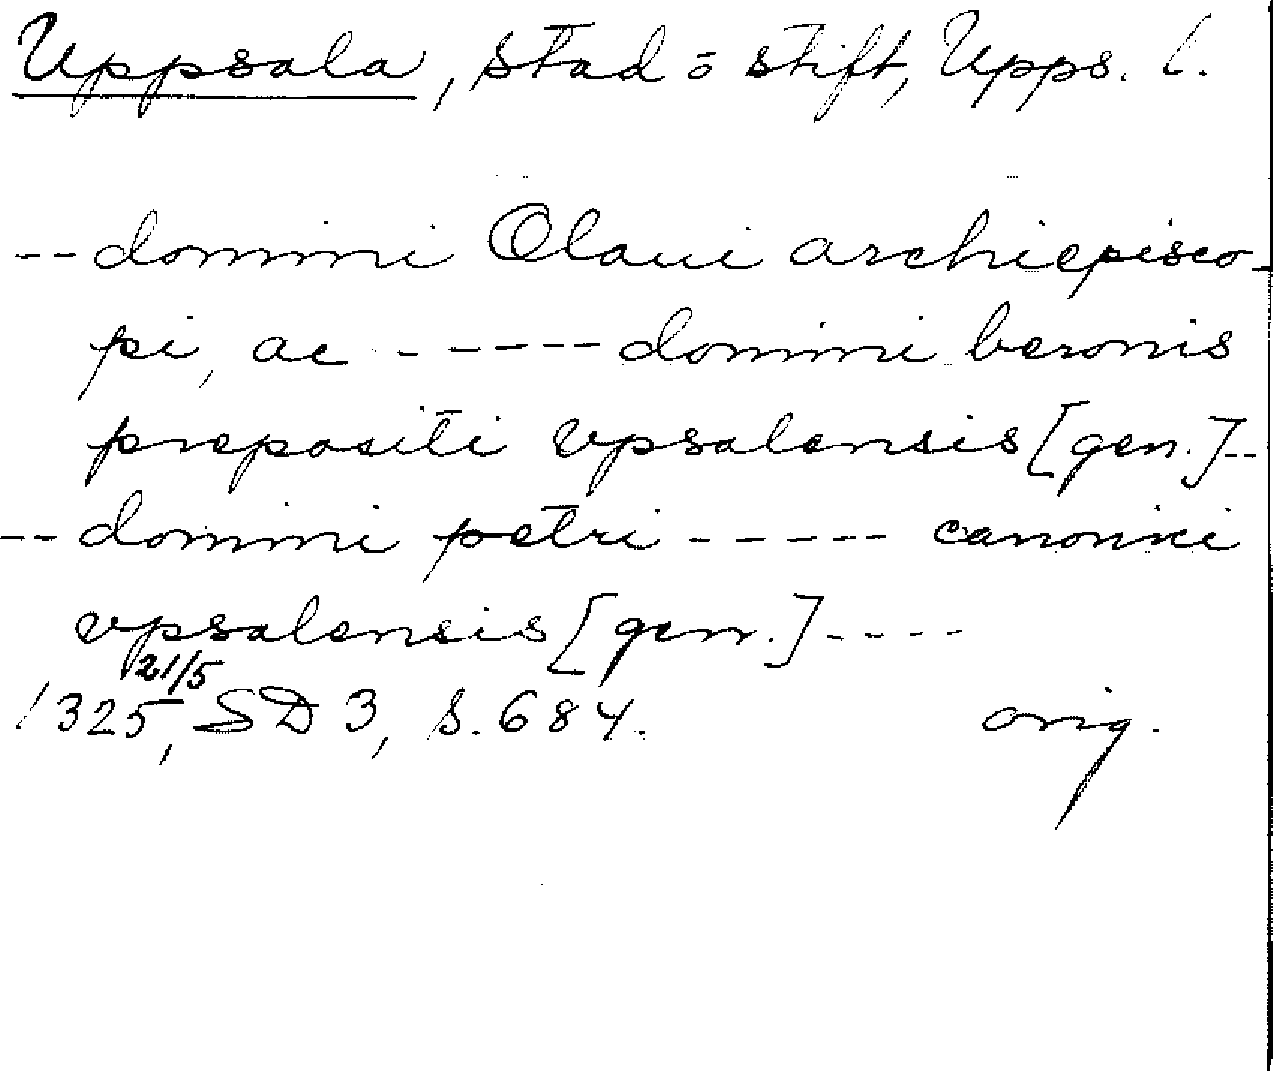 Uppsala, stad o stift, Upps. l.
-- domini Olaui archiepisco-
pi, ac ----- domini beronis
prepositi vpsalensis [gen.] --
-- domini petri ----- canonici
vpsalensis [gen.] ----
21/5
1325, SD 3, s. 684. orig.